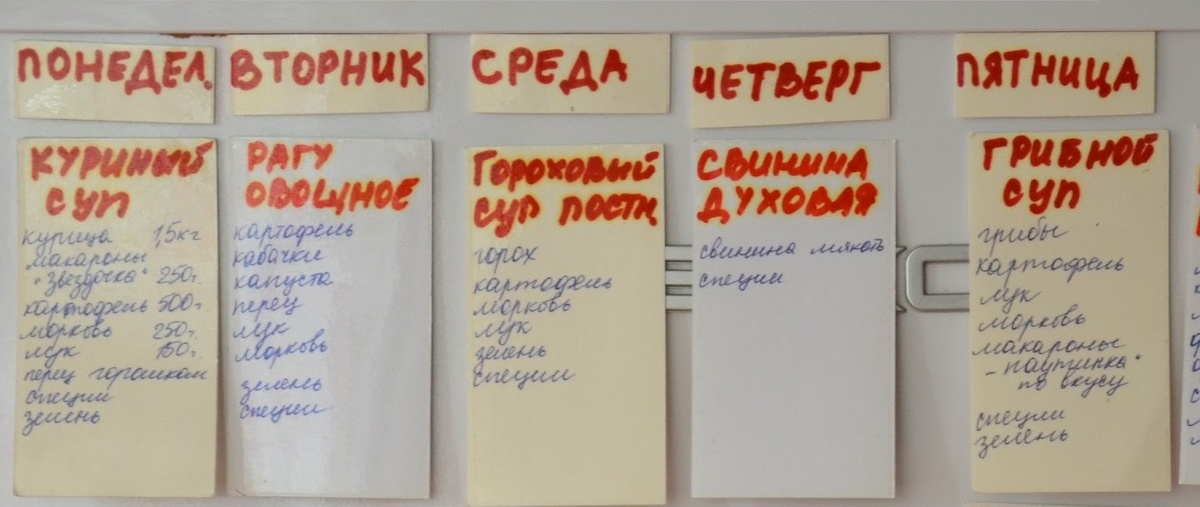 ПОНЕДЕЛ.
ВТОРНИК
СРЕДА
ЧЕТВЕРГ
ПЯТНИЦА
КУРИНЫЙ
СУП
курица 1,5кг
макароны
"Звездочка" 250г.
картофель 500г.
морковь 250г.
лук 150г.
перец горошком
специи
зелень
РАГУ
ОВОЩНОЕ
картофель
кабачки
капуста
перец
лук
морковь
зелень
специи
ГОРОХОВЫЙ
СУП ПОСТН
горох
картофель
морковь
лук
зелень
специи
СВИНИНА
ДУХОВАЯ
свинина мякоть
специи
ГРИБНОЙ
СУП
грибы
картофель
лук
морковь
макароны
"паутинка"
по вкусу
специи
зелень